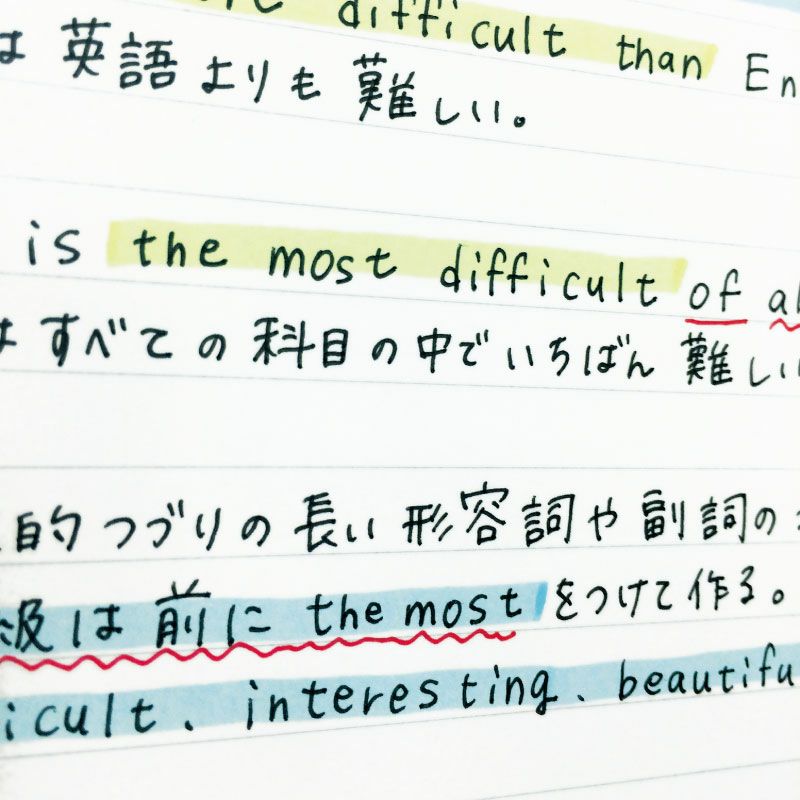 difficult than En
は英語よりも難しい。
is the most difficult of al
はすべての科目の中でいちばん難しい
的つづりの長い形容詞や副詞の
級は前に the most をつけて作る。
icult、interesting、beautifu